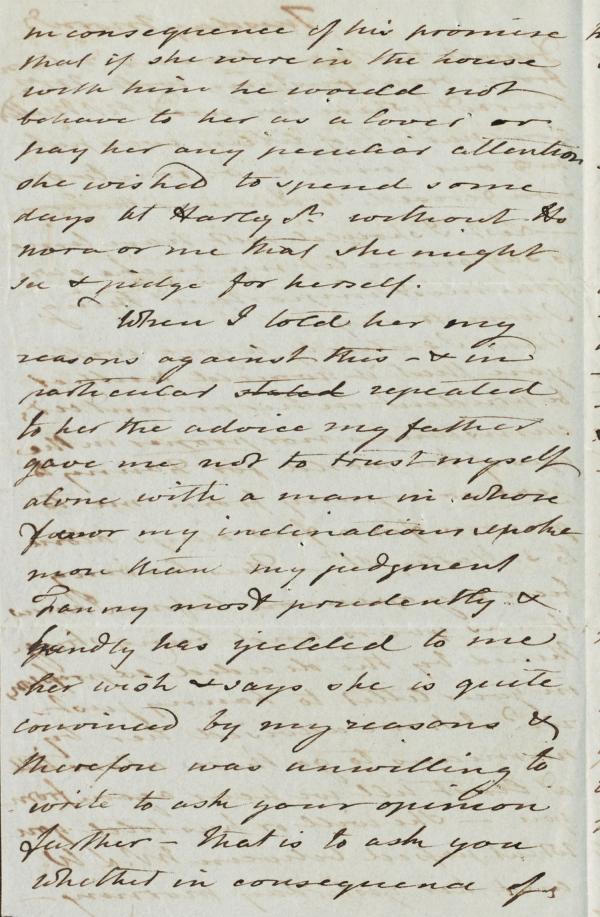 in consequence of his promise
that if she were in the house
with him he would not
behave to her as a lover or
pay her any peculiar attention
she wished to spend some
days at Harley St. without Ho
nora or me that she might
see & judge for herself.
When I told her my
reasons against this - & in
particular stated repeated
to her the advice my father
gave me not to trust myself
alone with a man in whose
favor my inclinations spoke
more than my judgment
Fanny most prudently &
kindly has yielded to me
her wish & says she is quite
convinced by my reasons &
therefore was unwilling to
write to ask your opinion
further - that is to ask you
whether in consequence of